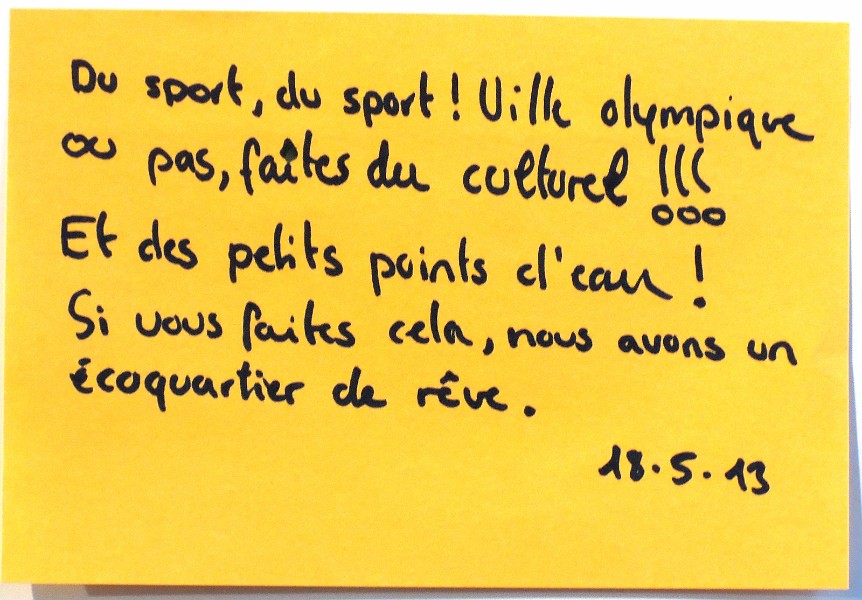 Du sport, du sport ! Ville olympique
ou pas, faites du culturel !!!
Et des petits points d'eau !
Si vous faites cela, nous avons un
écoquartier de rêve.
18.5.13